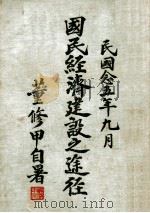 民國念五年九月
國民經濟建設之途徑
董修甲自署